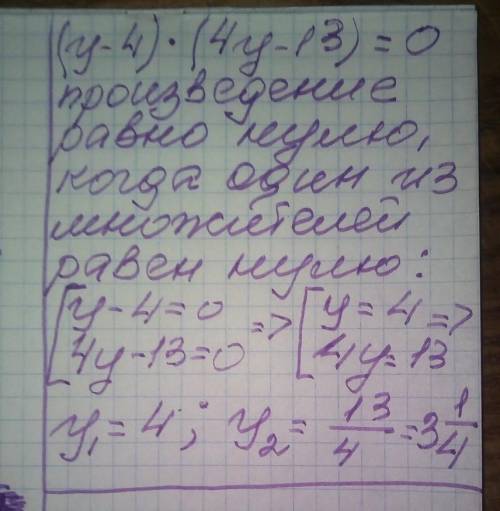 (y-4)·(4y-13)=0
произведение
равно нулю,
когда один из
множителей
равен нулю:
[y-4=0 => [y=4 =>
4y-13=0 4y=13
y₁=4; y₂=13/4=3 1/4